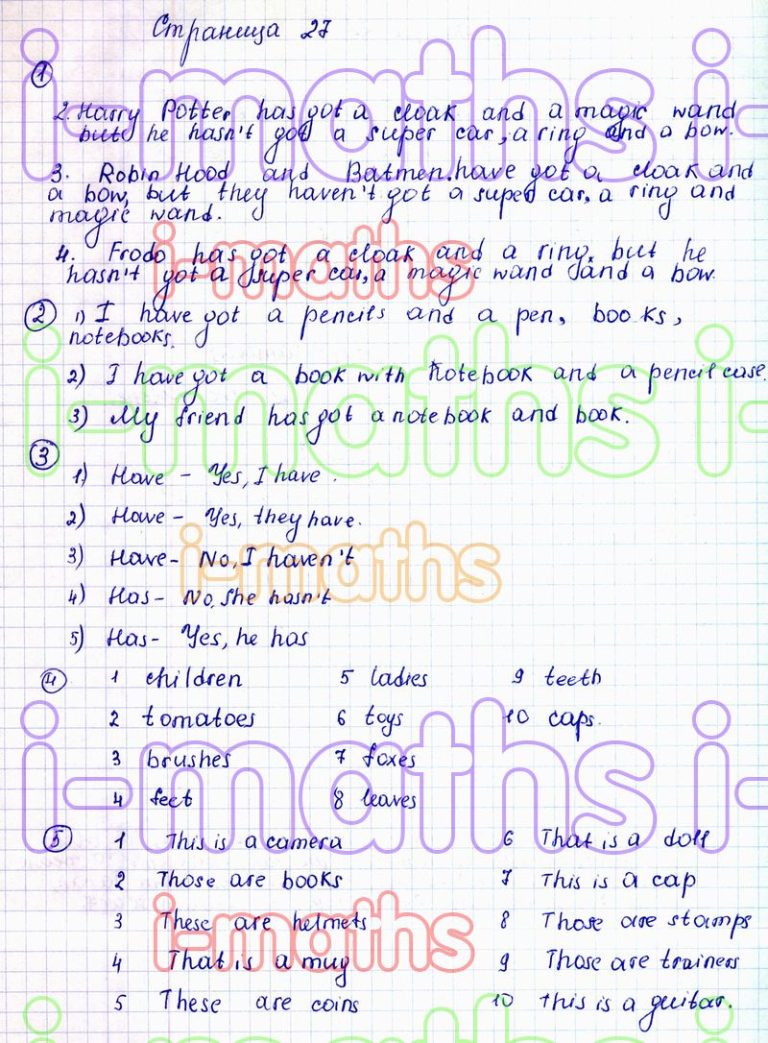 Страница 27
1
2. Harry Potter has got a cloak and a magic wand
but he hasn't got a super car, a ring and a bow.
3. Robin Hood and Batmen have got a cloak and
a bow, but they haven't got a super car, a ring and
magic wand.
4. Frodo has got a cloak and a ring, but he
hasn't got a super car, a magic wand and a bow
2 1) I have got a pencils and a pen, books,
notebooks.
2) I have got a book with notebook and a pencil case.
3) My friend has got a notebook and book.
3
1) Have - Yes, I have.
2) Have - Yes, they have.
3) Have - No, I haven't
4) Has - No, she hasn't
5) Has - Yes, he has
4 1 children 5 ladies 9 teeth
2 tomatoes 6 toys 10 caps.
3 brushes 7 foxes
4 feet 8 leaves
5 1 This is a camera 6 That is a doll
2 Those are books 7 This is a cap
3 These are helmets 8 Those are stamps
4 That is a mug 9 Those are trainers
5 These are coins 10 This is a guitar.
i-maths i-
i-maths
i-maths i-
i-maths
i-maths i-
i-maths